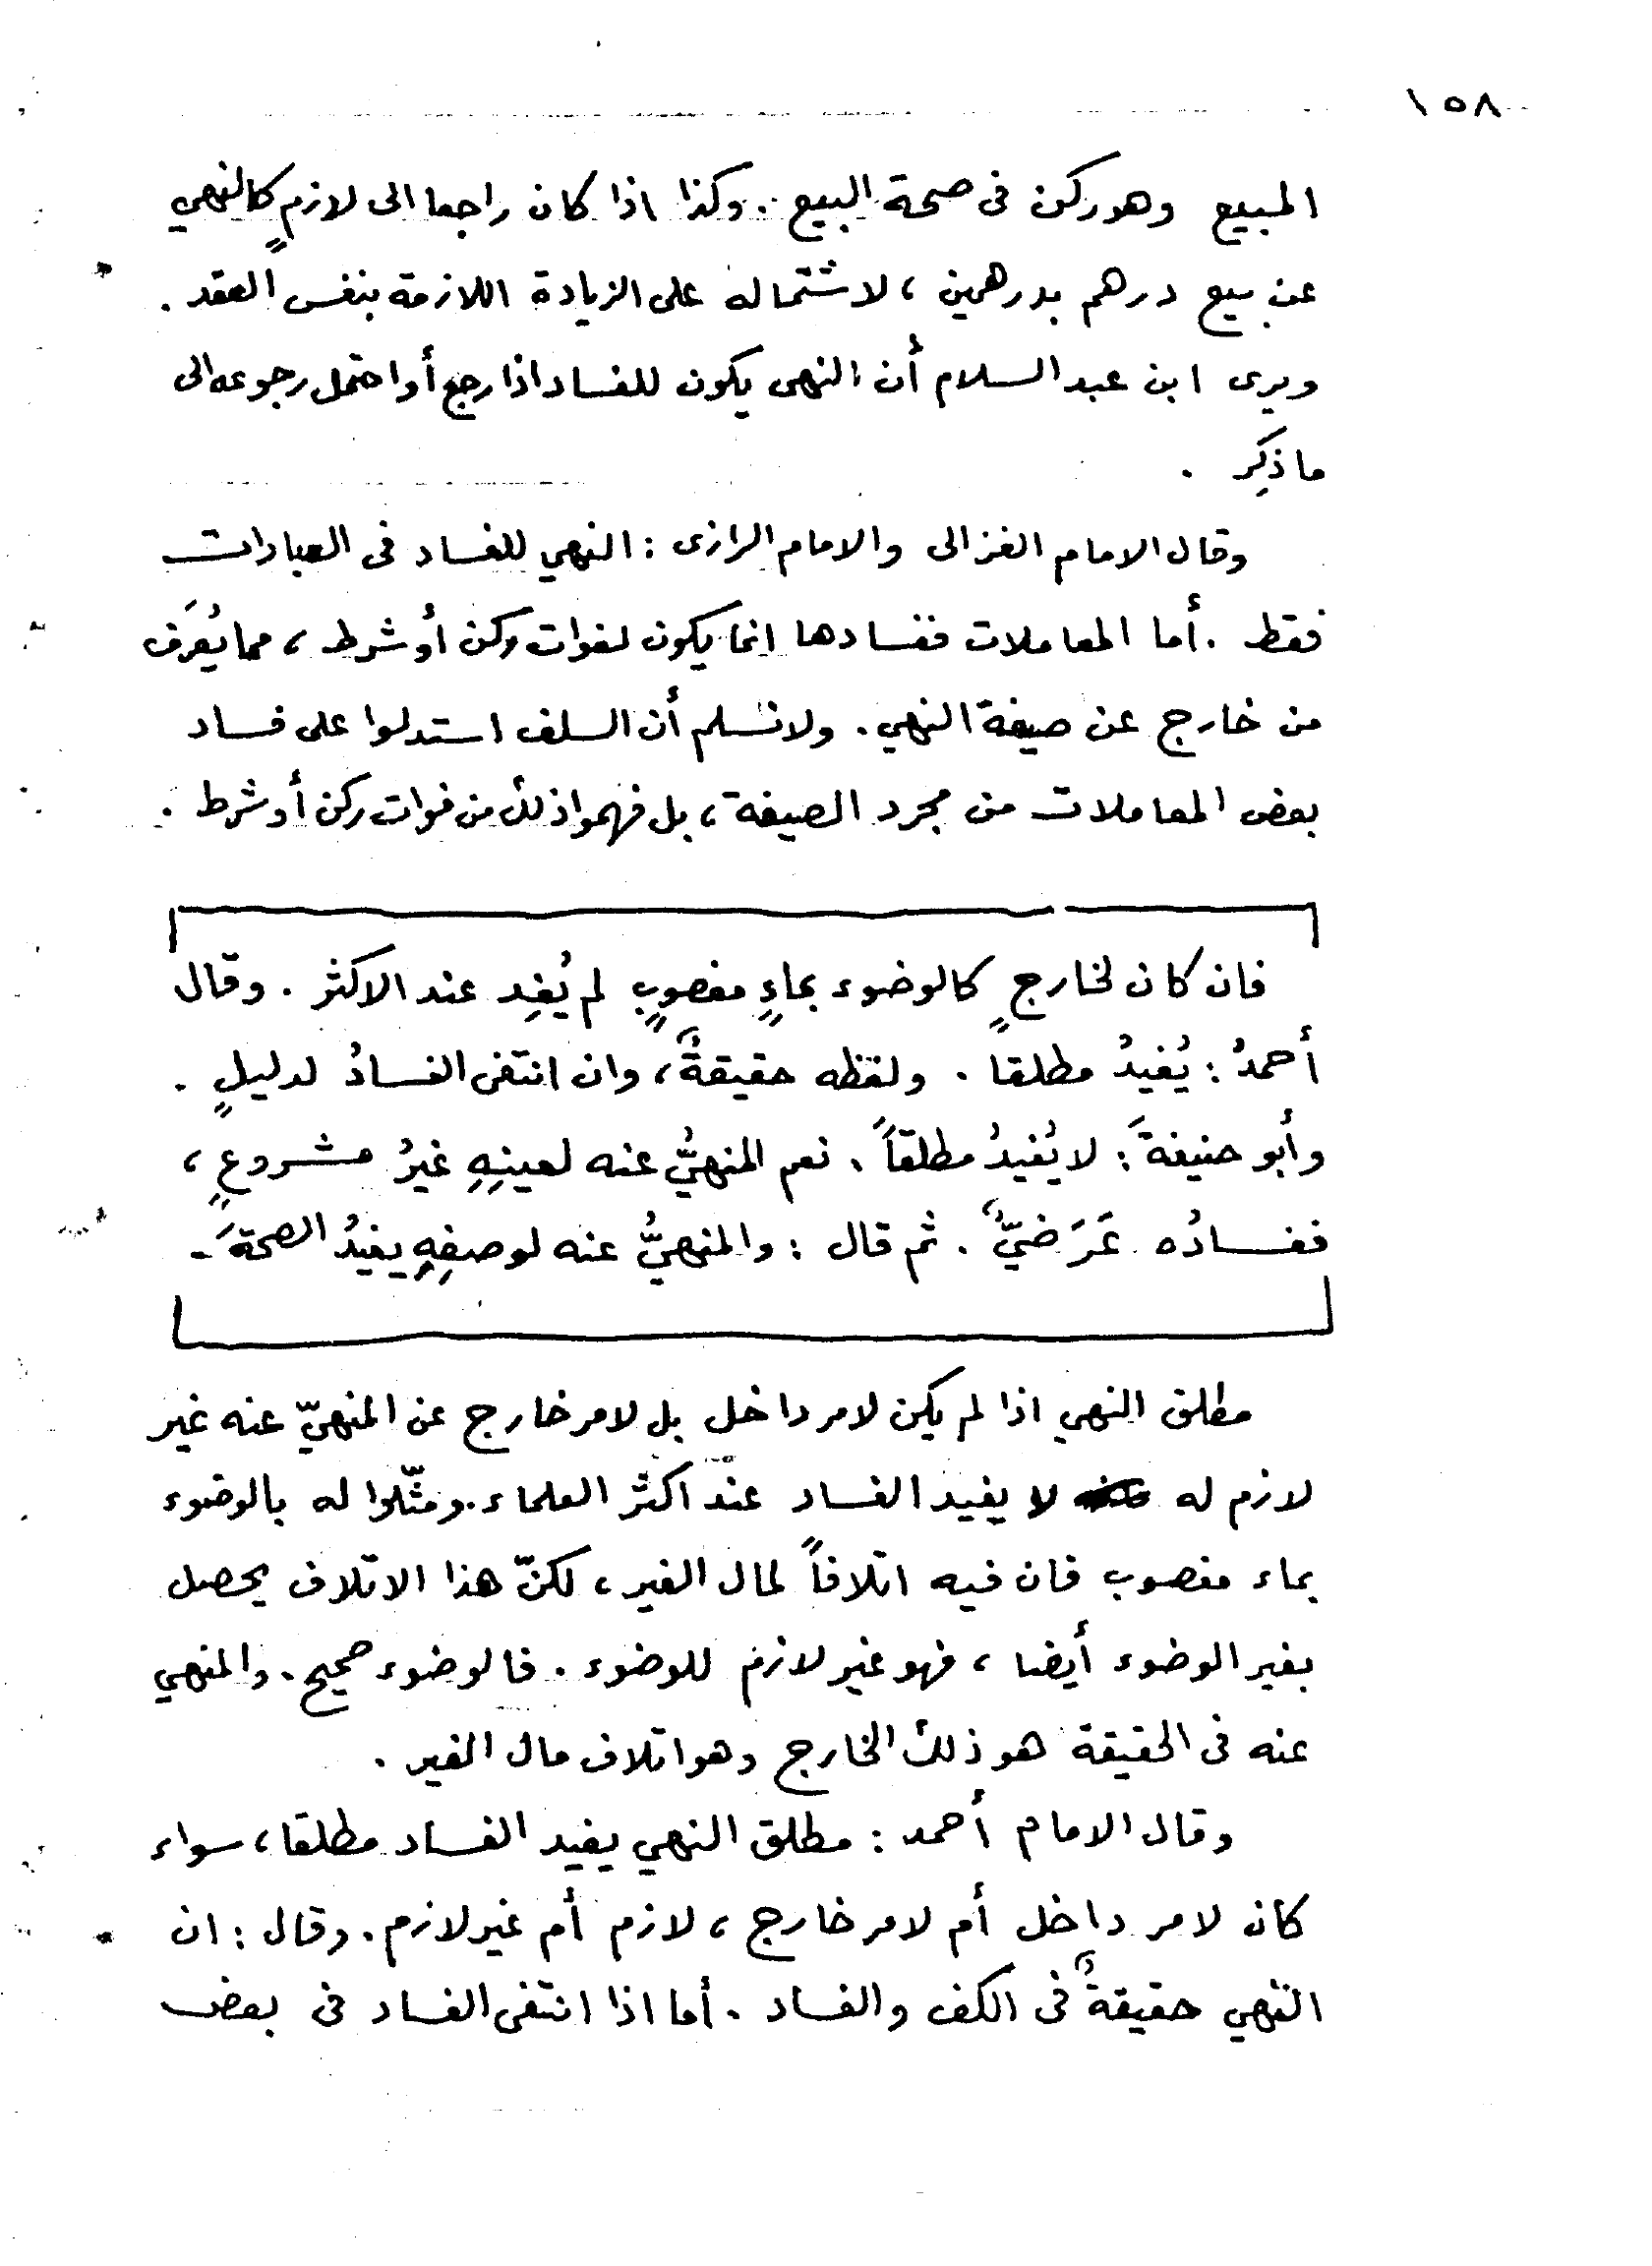 ١٥٨
المبيع وهو ركن فى صحة البيع . وكذا اذا كان راجعا الى لازمٍ كالنهي
عن بيع درهم بدرهمين ، لاشتماله على الزيادة اللازمة بنفس العقد .
ويرى ابن عبد السلام أن النهى يكون للفساد اذا رجع أو احتمل رجوعه الى
ما ذكِر .
وقال الامام الغزالى والامام الرازى : النهي للفساد فى العبادات
فقط . أما المعاملات ففسادها انما يكون لفوات ركن أو شرط ، مما يُعرَف
من خارج عن صيغة النهي . ولا نسلم أن السلف استدلوا على فساد
بعض المعاملات من مجرد الصيغة ، بل فهموا ذلك من فوات ركن أو شرط .
فان كان لخارجٍ كالوضوء بماءٍ مغصوبٍ لم يُفِد عند الاكثر . وقال
أحمدُ : يُفيدُ مطلقا . ولفظه حقيقةٌ ، وان انتفى الفسادُ لدليلٍ .
وأبو حنيفةَ : لا يُفيدُ مطلقاً . نعم المنهيُّ عنه لعينِهِ غيرُ مشروعٍ ،
ففسادُه عَرَضيٌّ . ثم قال : والمنهيُّ عنه لوصفِهِ يفيدُ الصحةَ .
مطلق النهي اذا لم يكن لامر داخل بل لامر خارج عن المنهيّ عنه غير
لازم له لا يفيد الفساد عند اكثر العلماء . ومثّلوا له بالوضوء
بماء مغصوب فان فيه اتلافاً لمال الغير ، لكنّ هذا الاتلاف يحصل
بغير الوضوء أيضا ، فهو غير لازم للوضوء . فالوضوء صحيح . والمنهي
عنه فى الحقيقة هو ذلك الخارج وهو اتلاف مال الغير .
وقال الامام أحمد : مطلق النهي يفيد الفساد مطلقا ، سواء
كان لامر داخل أم لامر خارج ، لازم أم غير لازم . وقال : ان
النهي حقيقةٌ فى الكف والفساد . أما اذا انتفى الفساد فى بعض